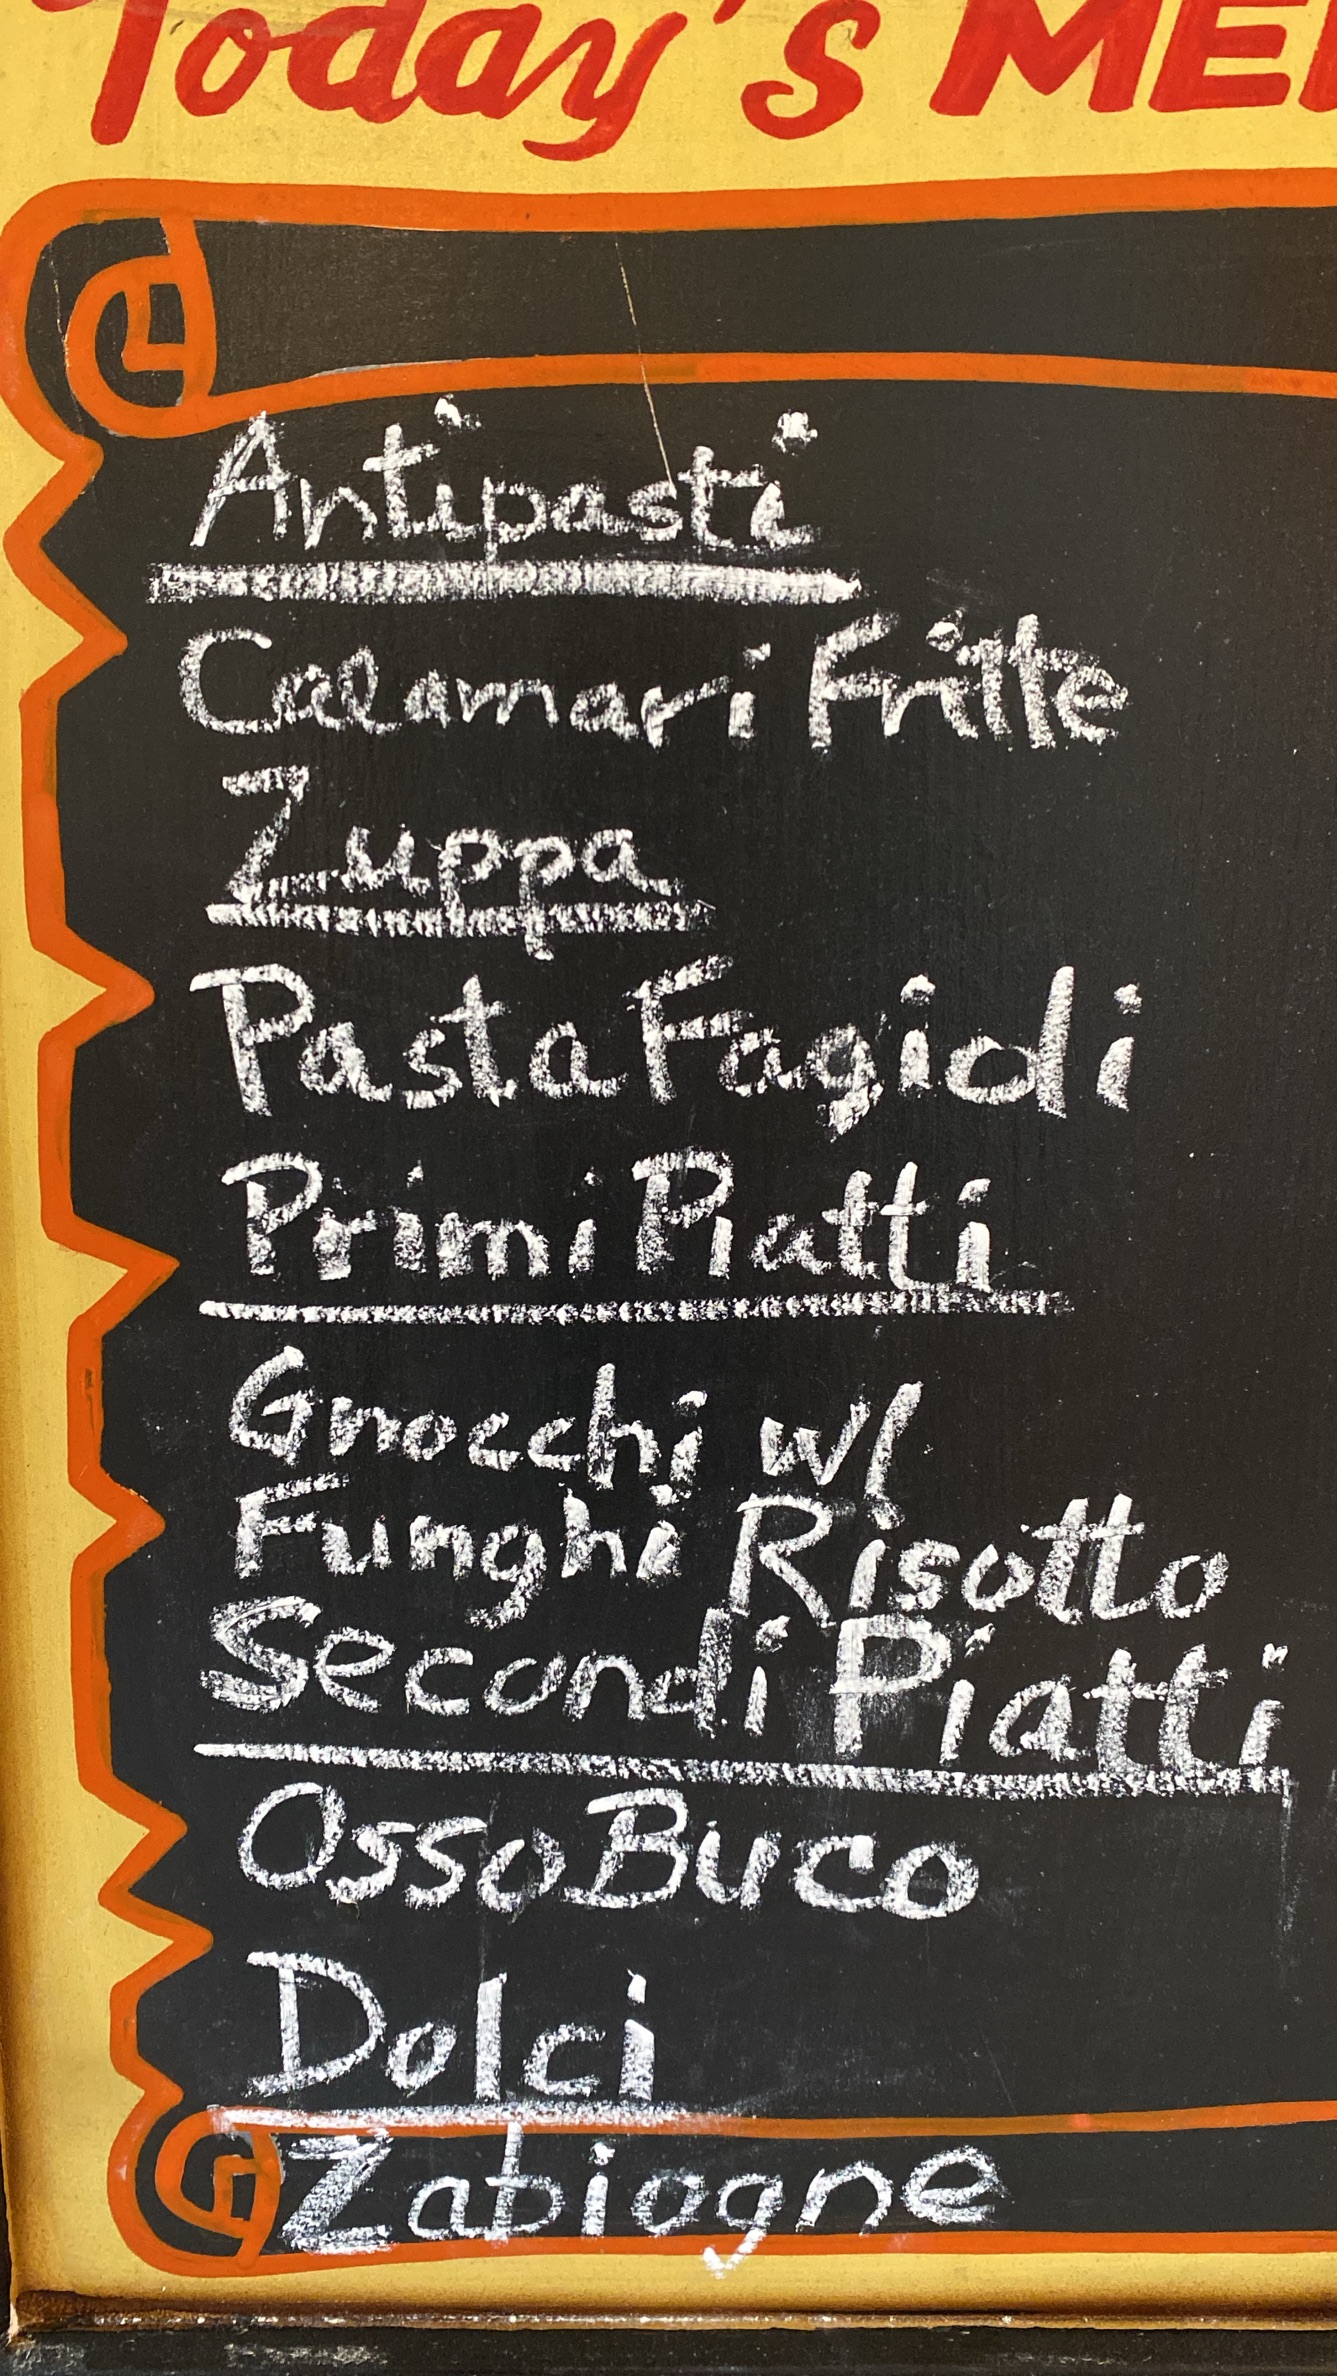 Today's MEN
Antipasti
Calamari Fritte
Zuppa
Pasta Fagioli
Primi Piatti
Gnocchi w/
Funghi Risotto
Secondi Piatti
Osso Buco
Dolci
Zabiogne